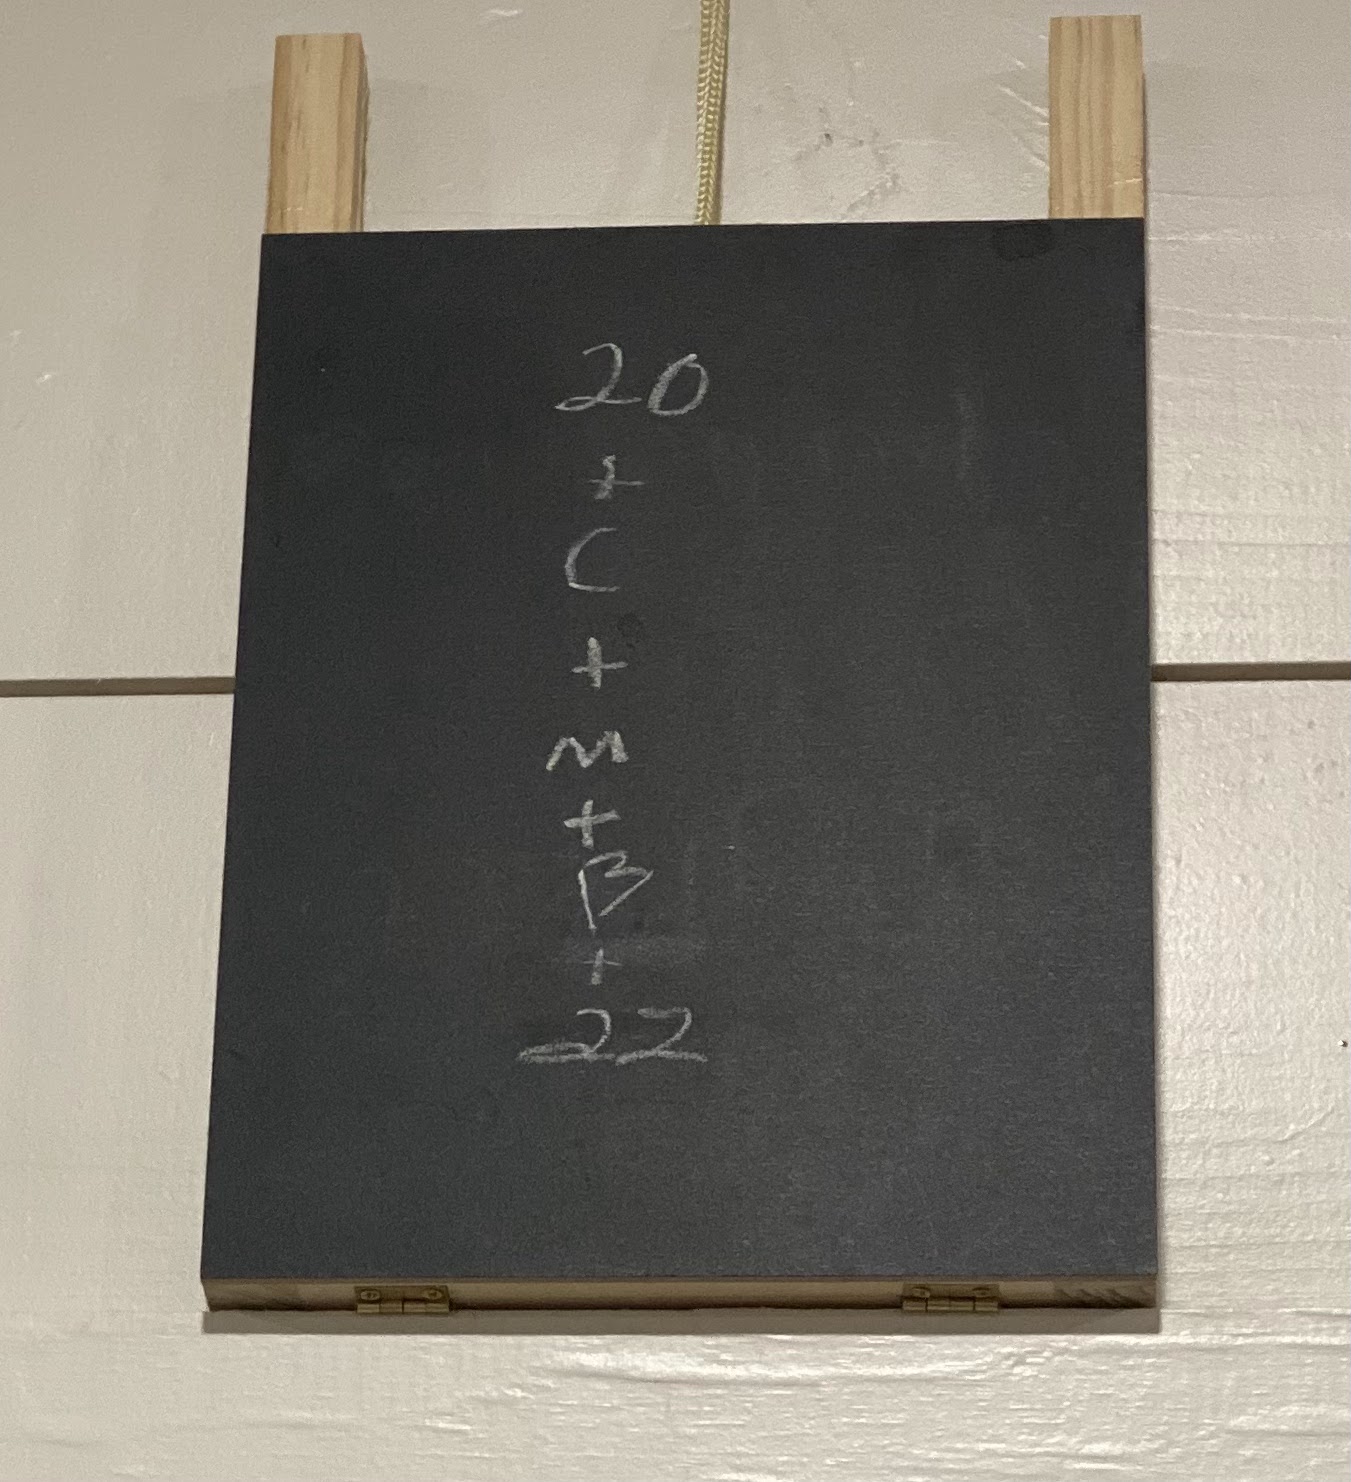 20
+
C
+
M
+
B
+
22